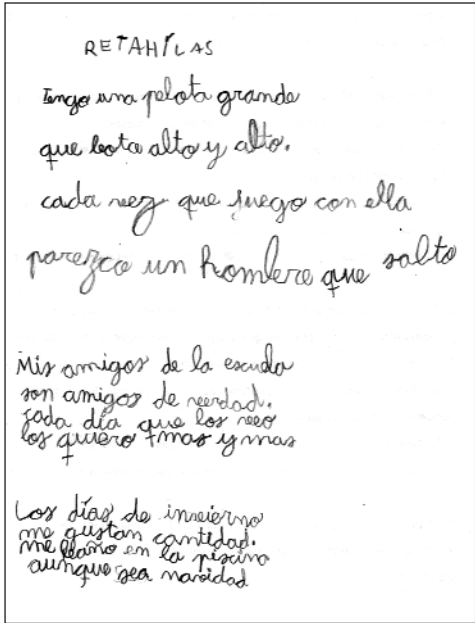 RETAHÍLAS
Tengo una pelota grande
que bota alto y alto.
cada vez que juego con ella
parezco un hombre que salta
Mis amigos de la escuela
son amigos de verdad.
Cada día que los veo
los quiero mas y mas
Los días de invierno
me gustan cantidad.
me baño en la piscina
aunque sea navidad